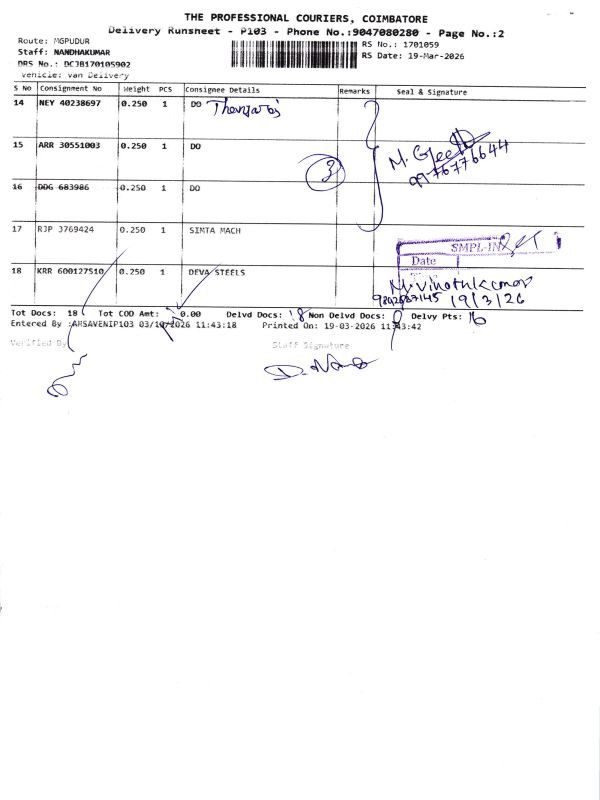 THE PROFESSIONAL COURIERS, COIMBATORE
Delivery Runsheet - P103 - Phone No.:9047080280 - Page No.:2
Route: MGPUDUR
RS No.: 1701059
Staff: NANDHAKUMAR
RS Date: 19-Mar-2026
DRS No.: DCJB170105902
Vehicle: Van Delivery
S No Consignment No Weight PCS Consignee Details Remarks Seal & Signature
14 NEY 40238697 0.250 1 DO
15 ARR 30551003 0.250 1 DO
M. Geetha
9976776644
3
16 DDG 683986 0.250 1 DO
17 RJP 3769424 0.250 1 SIMTA MACH
SMPL-IN
Date
18 KRR 600127510 0.250 1 DEVA STEELS
M. Vinothkumar
19/3/26
Tot Docs: 18 Tot COD Amt: 0.00 Delvd Docs: 18 Non Delvd Docs: Delvy Pts: 16
Entered By :AHSAVENIP103 03/19/2026 11:43:18 Printed On: 19-03-2026 11:43:42
Verified By
Staff Signature